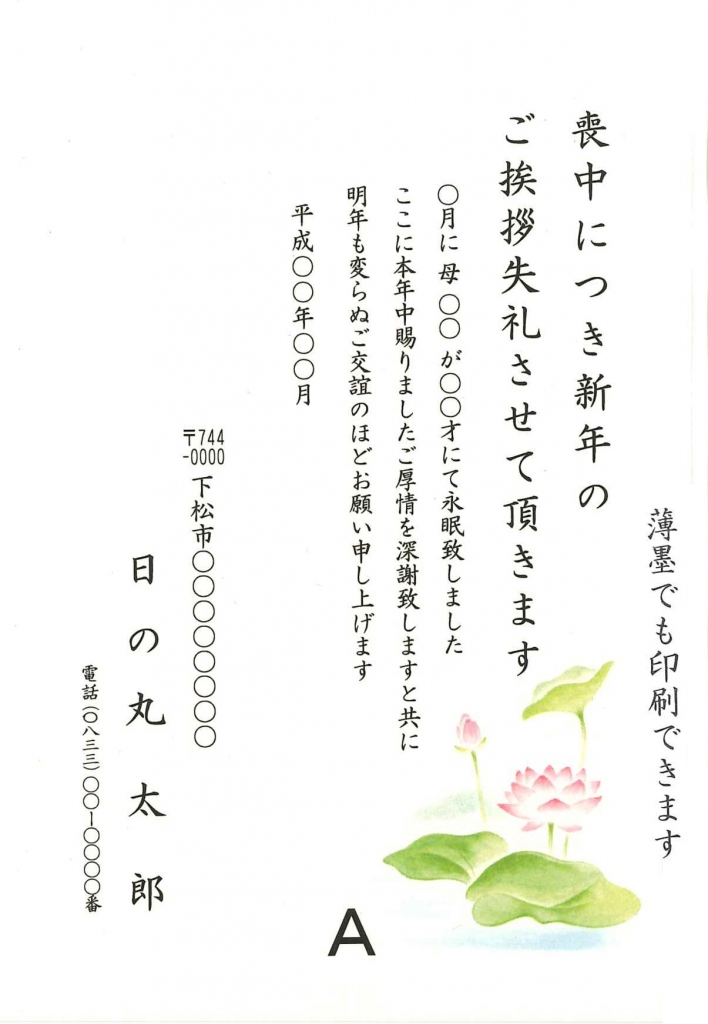 薄墨でも印刷できます
喪中につき新年の
ご挨拶失礼させて頂きます
〇月に 母 〇〇 が〇〇才にて永眠致しました
ここに本年中賜りましたご厚情を深謝致しますと共に
明年も変らぬご交誼のほどお願い申し上げます
平成〇〇年〇〇月
〒744
-0000
下松市〇〇〇〇〇〇〇〇
日の丸太郎
電話(〇八三三)〇〇ー〇〇〇〇番
A